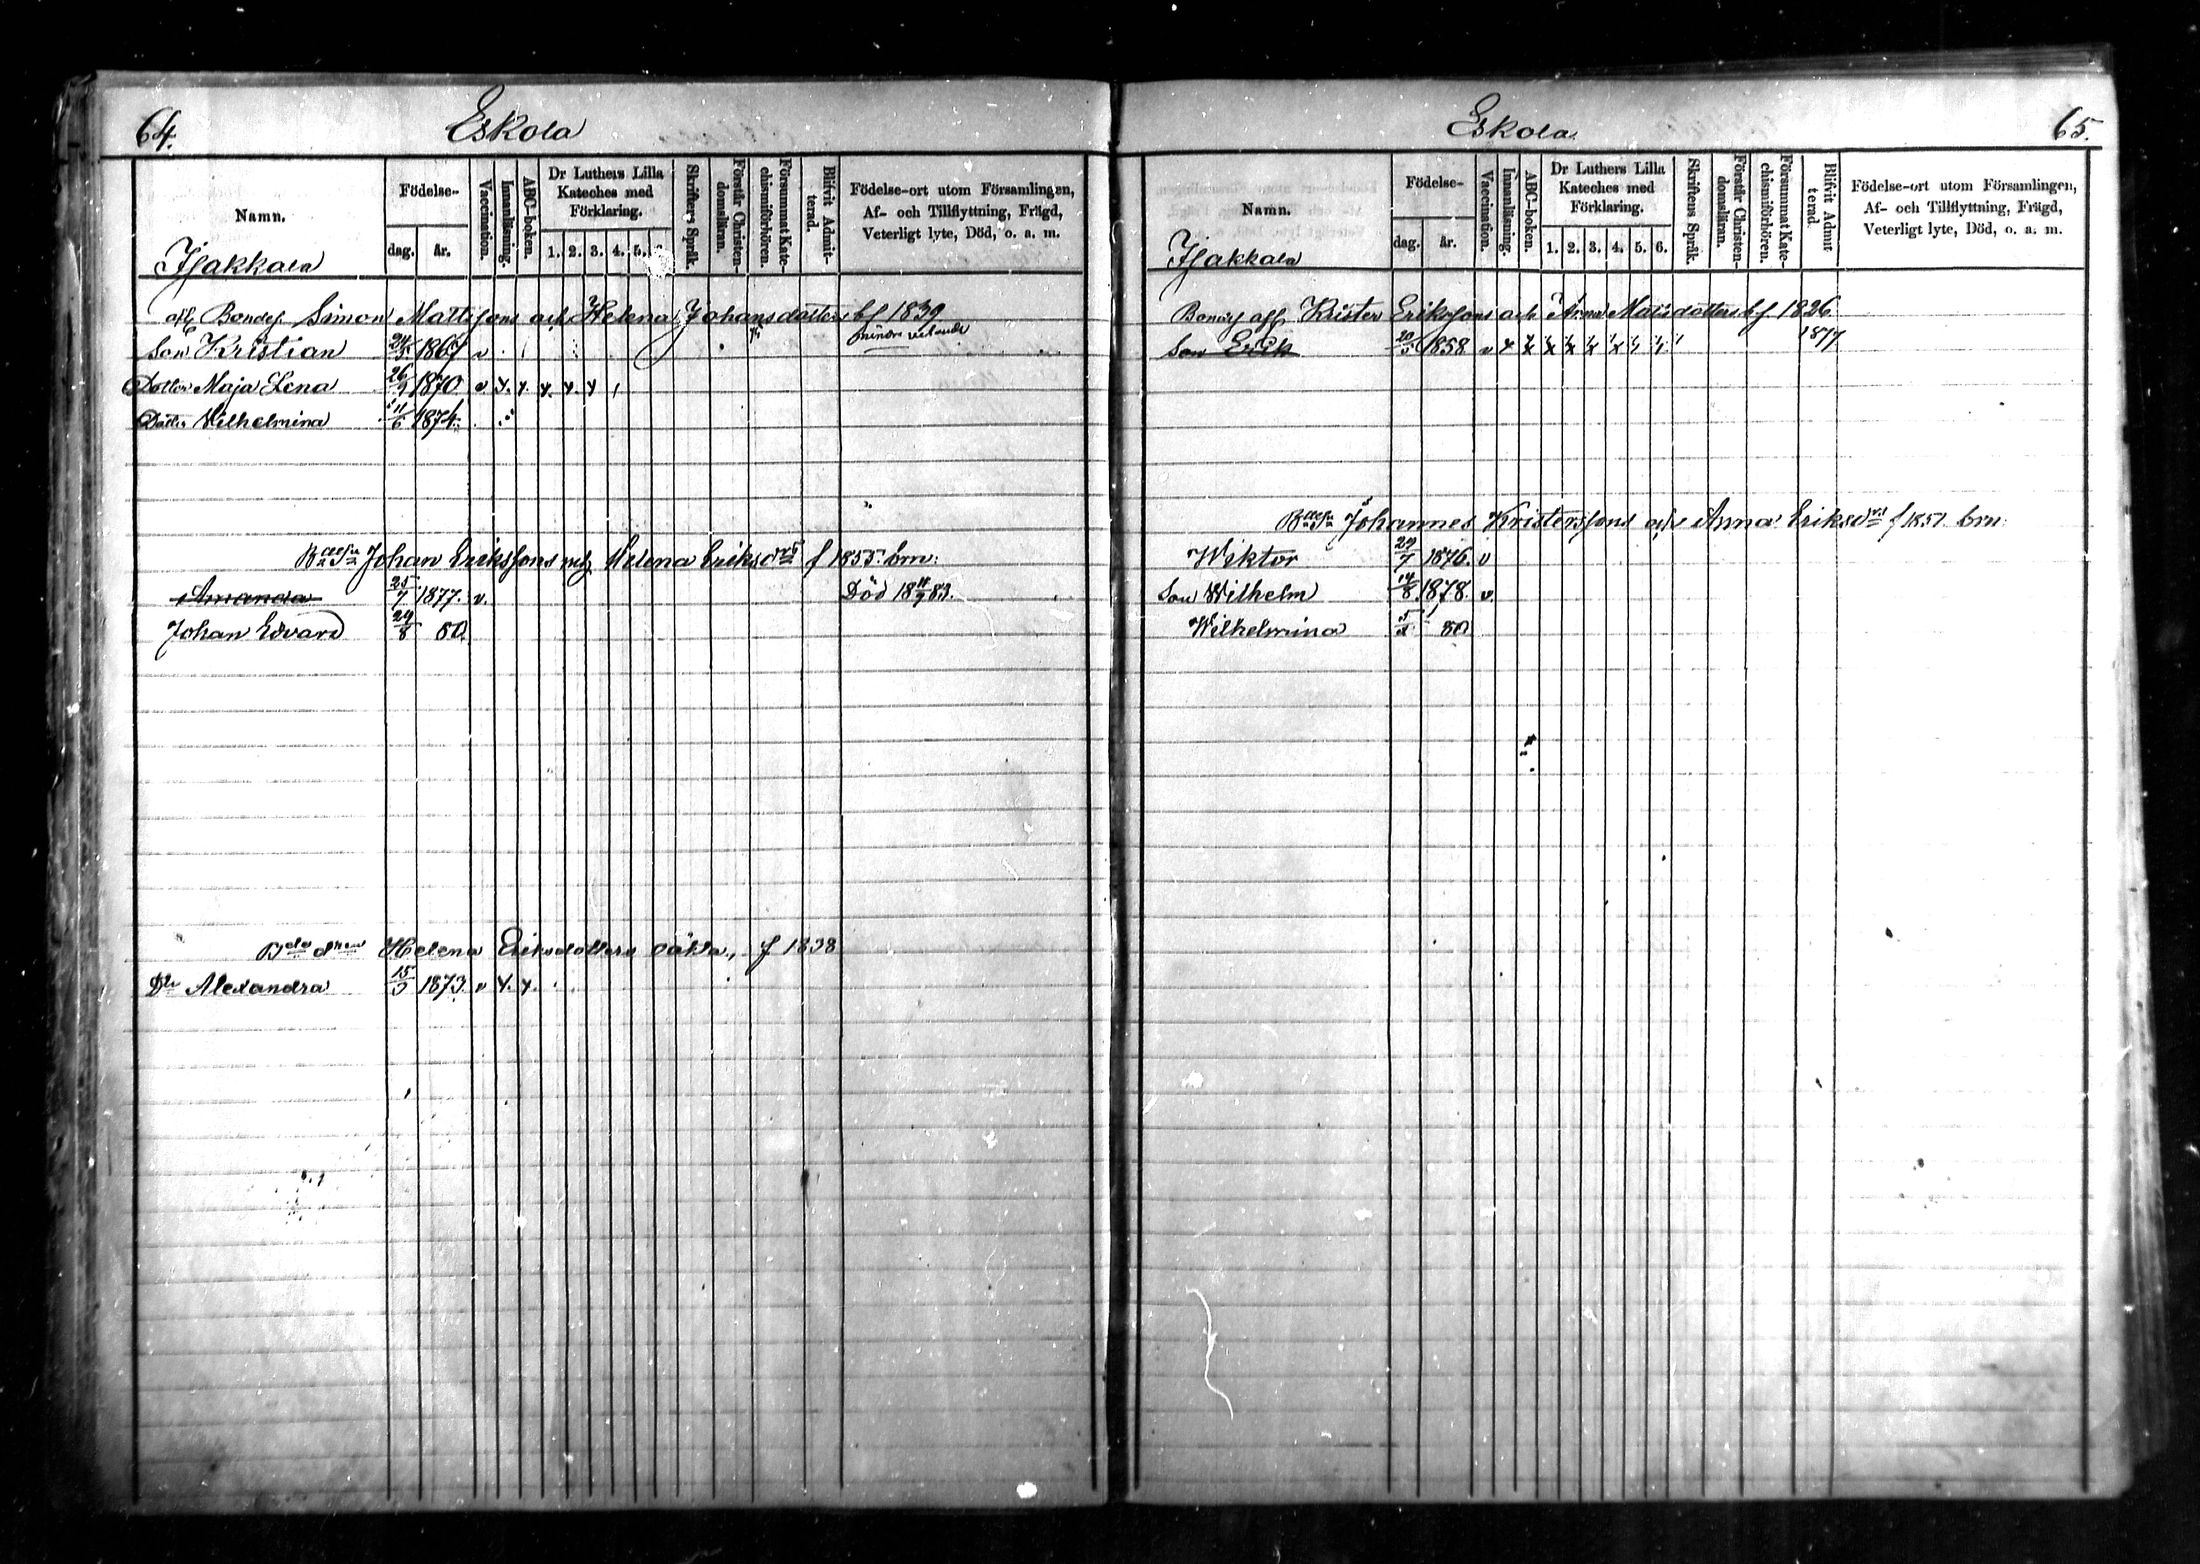 64.
Eskola
Namn.
Födelse-
dag. år.
Vaccination.
Innanläsning.
ABC-boken.
Dr Luthers Lilla
Kateches med
Förklaring.
1. 2. 3. 4. 5.
Skriftens Språk.
Förstår Christen-
domsläran.
Försummat Kate-
chismiförhören.
Blifvit Admit-
terad.
Födelse-ort utom Församlingen,
Af- och Tillflyttning, Frägd,
Veterligt lyte, Död, o. a. m.
Jjakkala
afl. Bondes Simon Mattssons och Helena Johansdotters bf 1839
Son Kristian 1867 v
Dotter Maja Lena 26/9 1870 v
Dotter Wilhelmina 11/6 1874
Johan Erikssons och Helena Eriks drs f 1855. brn:
Amanda 25/7 1877. v. Död 18 11/9 83.
Johan Edvard 24/8 80.
Helena Eriksdotters oäkta, f 1838
Dr Alexandra 15/5 1873. v
Eskola
65.
Namn.
Födelse-
dag. år.
Vaccination.
Innanläsning.
ABC-boken.
Dr Luthers Lilla
Kateches med
Förklaring.
1. 2. 3. 4. 5. 6.
Skriftens Språk.
Förstår Christen-
domsläran.
Försummat Kate-
chismiförhören.
Blifvit Admit-
terad.
Födelse-ort utom Församlingen,
Af- och Tillflyttning, Frägd,
Veterligt lyte, Död, o. a. m.
Jjakkala
Krister Erikssons och Anna Matsdotters bf 1826
Son Erik 20/5 1858 v 1877
Johannes Kristerssons och Anna Eriksdrs f 1851 brn:
Wiktor 29/7 1876. v
Son Wilhelm 14/8 1878. v.
Wilhelmina 80